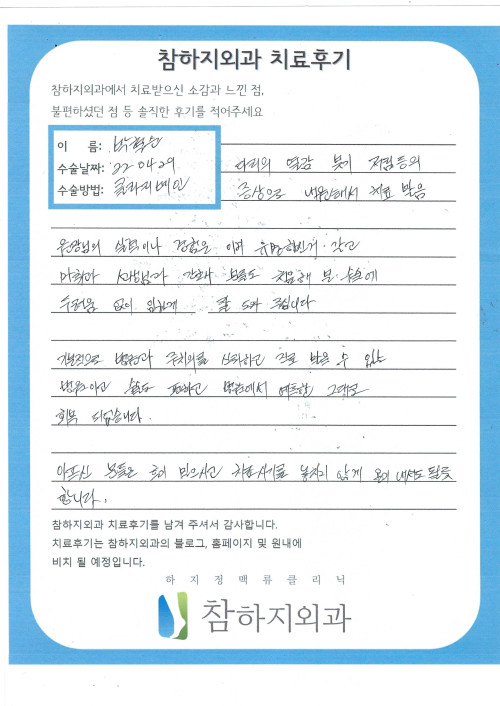 참하지외과 치료후기
참하지외과에서 치료받으신 소감과 느낀 점,
불편하셨던 점 등 솔직한 후기를 적어주세요
이 름:
수술날짜: 22.04.29
수술방법: 클라리베인
다리의 열감 붓기 저림등의
증상으로 내원해서 치료 받음
원장님의 실력이나 경험은 이미 유명하신거 같고
마취과 선생님과 간호사 분들도 처음해 본 수술에
두려움 없이 임하게 잘 도와 주십니다
개인적으로 병원과 주치의를 신뢰하고 진료 받을 수 있는
병원이고 수술도 편하고 병원에서 예측한 그대로
회복 되었습니다.
아프신 분들은 믿으시고 치료시기를 놓치지 않게
합니다.
참하지외과 치료후기를 남겨 주셔서 감사합니다.
치료후기는 참하지외과의 블로그, 홈페이지 및 원내에
비치 될 예정입니다.
하지정맥류클리닉
참하지외과